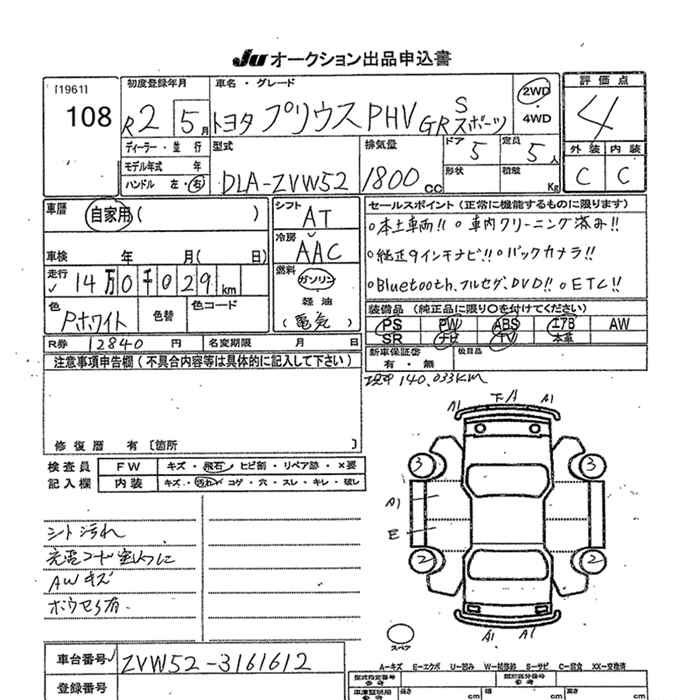 Ju オークション出品申込書
[1961]
108
初度登録年月
R2 5月
車名・グレード
トヨタ プリウスPHV GR S スポーツ
2WD
・
4WD
評価点
4
外装 内装
C C
ディーラー・並行
モデル年式 年
ハンドル 左・右
型式
DLA-ZVW52
排気量
1800cc
ドア 5
形状
定員 5人
積載 Kg
車歴
自家用( )
車検 年 月( 日)
走行
14万0千029km
色
Pホワイト
色替
色コード
シフト
AT
冷房
AAC
燃料
ガソリン
軽油
(電気)
セールスポイント(正常に機能するものに限ります)
○本土車両!! ○車内クリーニング済み!!
○純正9インチナビ!! ○バックカメラ!!
○Bluetooth、フルセグ、DVD!! ○ETC!!
装備品(純正品に限り○を付けてください)
PS PW ABS エアB AW
SR ナビ TV 本革
R券 12840円 名変期限 月 日
新車保証書
有・無
欠品目
現車 140,033KM
注意事項申告欄(不具合内容等は具体的に記入して下さい)
修復歴 有〔箇所
検査員
記入欄
FW キズ・飛石・ヒビ割・リペア跡・×要
内装 キズ・汚れ・コゲ・穴・スレ・キレ・破し
シート汚れ
AWキズ
A1 下A A1
3 3
A1
E
2 2
A1 A1
スペア
A-キズ E-エクボ U-凹み W-補修跡 S-サビ C-腐食 XX-交換済
車台番号 ZVW52-3161612
登録番号
型式指定番号
類別区分番号
長さ cm 幅 cm 高さ cm